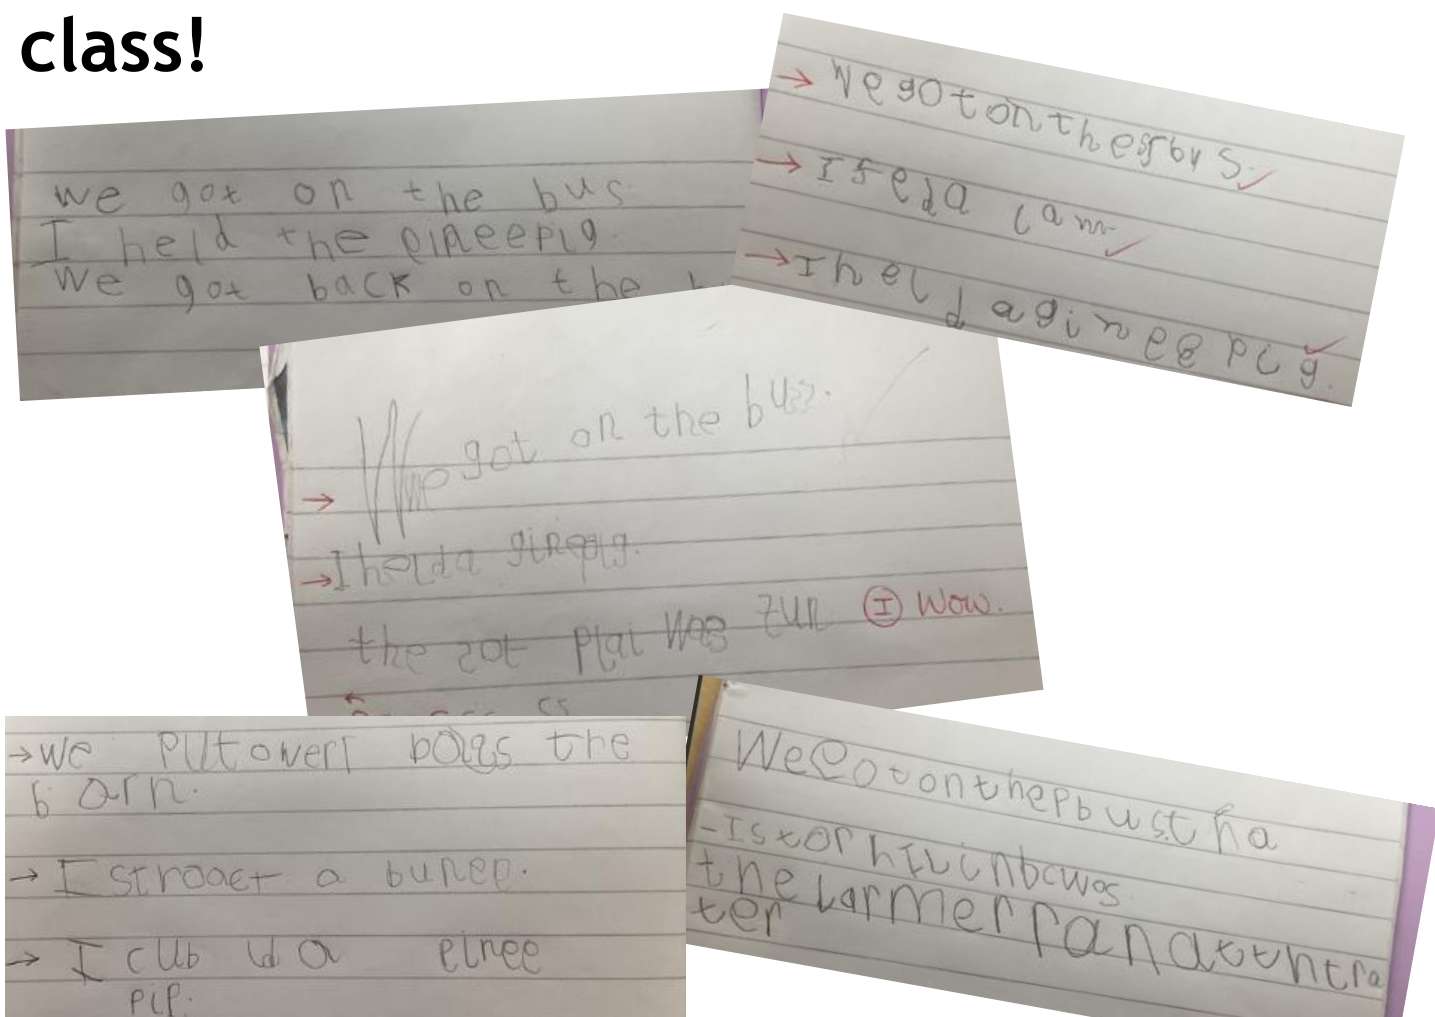 class!
We got on the bus.
I held the gineepig.
We got back on the
We got on the bus.
I feda lam.
I held a gineepig.
We got on the bus.
I helda ginepig.
the sot plai was fun I wow.
we put owerl bags the
barn.
I stroact a bunee.
I cub ld a einee
pip.
WeGotonthebbus.t
the farmer rand
ter